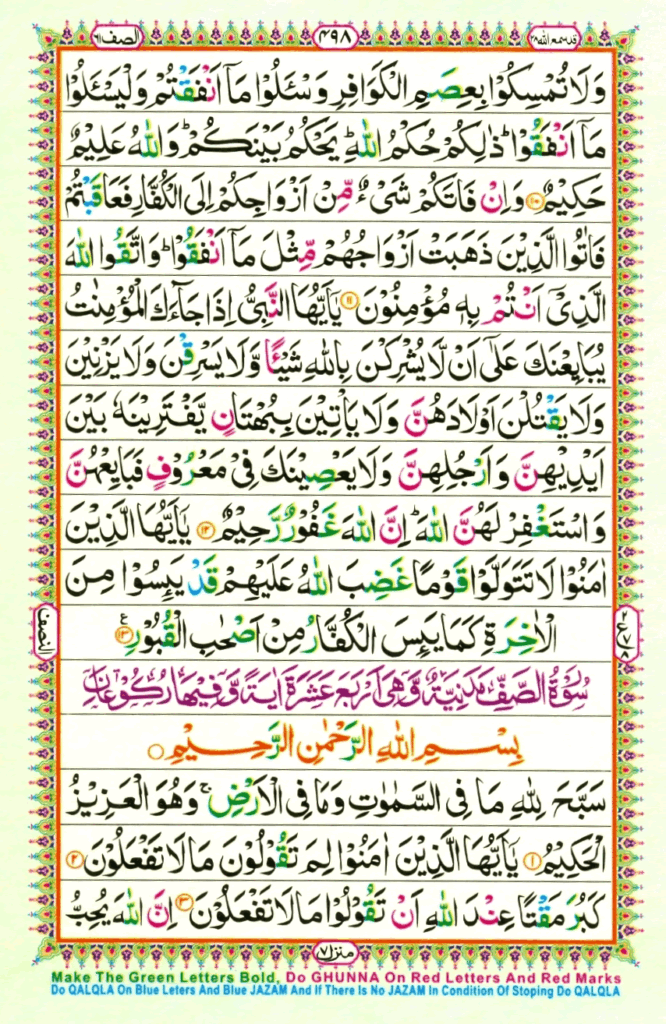 قد سمع الله ٢٨ ٤٩٨ الصف ٦١
وَلَا تُمْسِكُوْا بِعِصَمِ الْكَوَافِرِ وَسْـَٔلُوْا مَآ اَنْفَقْتُمْ وَلْيَسْـَٔلُوْا
مَآ اَنْفَقُوْا ؕ ذٰلِكُمْ حُكْمُ اللّٰهِ ؕ يَحْكُمُ بَيْنَكُمْ ؕ وَاللّٰهُ عَلِيْمٌ
حَكِيْمٌ ۝۱۰ وَاِنْ فَاتَكُمْ شَىْءٌ مِّنْ اَزْوَاجِكُمْ اِلَى الْكُفَّارِ فَعَاقَبْتُمْ
فَاٰتُوا الَّذِيْنَ ذَهَبَتْ اَزْوَاجُهُمْ مِّثْلَ مَآ اَنْفَقُوْا ؕ وَاتَّقُوا اللّٰهَ
الَّذِىْۤ اَنْتُمْ بِهٖ مُؤْمِنُوْنَ ۝۱۱ يٰۤاَيُّهَا النَّبِىُّ اِذَا جَآءَكَ الْمُؤْمِنٰتُ
يُبَايِعْنَكَ عَلٰٓى اَنْ لَّا يُشْرِكْنَ بِاللّٰهِ شَيْـًٔا وَّلَا يَسْرِقْنَ وَلَا يَزْنِيْنَ
وَلَا يَقْتُلْنَ اَوْلَادَهُنَّ وَلَا يَاْتِيْنَ بِبُهْتَانٍ يَّفْتَرِيْنَهٗ بَيْنَ
اَيْدِيْهِنَّ وَاَرْجُلِهِنَّ وَلَا يَعْصِيْنَكَ فِىْ مَعْرُوْفٍ فَبَايِعْهُنَّ
وَاسْتَغْفِرْ لَهُنَّ اللّٰهَ ؕ اِنَّ اللّٰهَ غَفُوْرٌ رَّحِيْمٌ ۝۱۲ يٰۤاَيُّهَا الَّذِيْنَ
اٰمَنُوْا لَا تَتَوَلَّوْا قَوْمًا غَضِبَ اللّٰهُ عَلَيْهِمْ قَدْ يَىِٕسُوْا مِنَ
الْاٰخِرَةِ كَمَا يَىِٕسَ الْكُفَّارُ مِنْ اَصْحٰبِ الْقُبُوْرِ ۝۱۳ ع
سُوْرَةُ الصَّفِّ مَدَنِيَّةٌ وَّهِىَ اَرْبَعَ عَشَرَةَ اٰيَةً وَّفِيْهَا رُكُوْعَانِ
بِسْمِ اللّٰهِ الرَّحْمٰنِ الرَّحِيْمِ ۝
سَبَّحَ لِلّٰهِ مَا فِى السَّمٰوٰتِ وَمَا فِى الْاَرْضِ ۚ وَهُوَ الْعَزِيْزُ
الْحَكِيْمُ ۝۱ يٰۤاَيُّهَا الَّذِيْنَ اٰمَنُوْا لِمَ تَقُوْلُوْنَ مَا لَا تَفْعَلُوْنَ ۝۲
كَبُرَ مَقْتًا عِنْدَ اللّٰهِ اَنْ تَقُوْلُوْا مَا لَا تَفْعَلُوْنَ ۝۳ اِنَّ اللّٰهَ يُحِبُّ
منزل ٧
Make The Green Letters Bold, Do GHUNNA On Red Letters And Red Marks
Do QALQLA On Blue Leters And Blue JAZAM And If There Is No JAZAM In Condition Of Stoping Do QALQLA